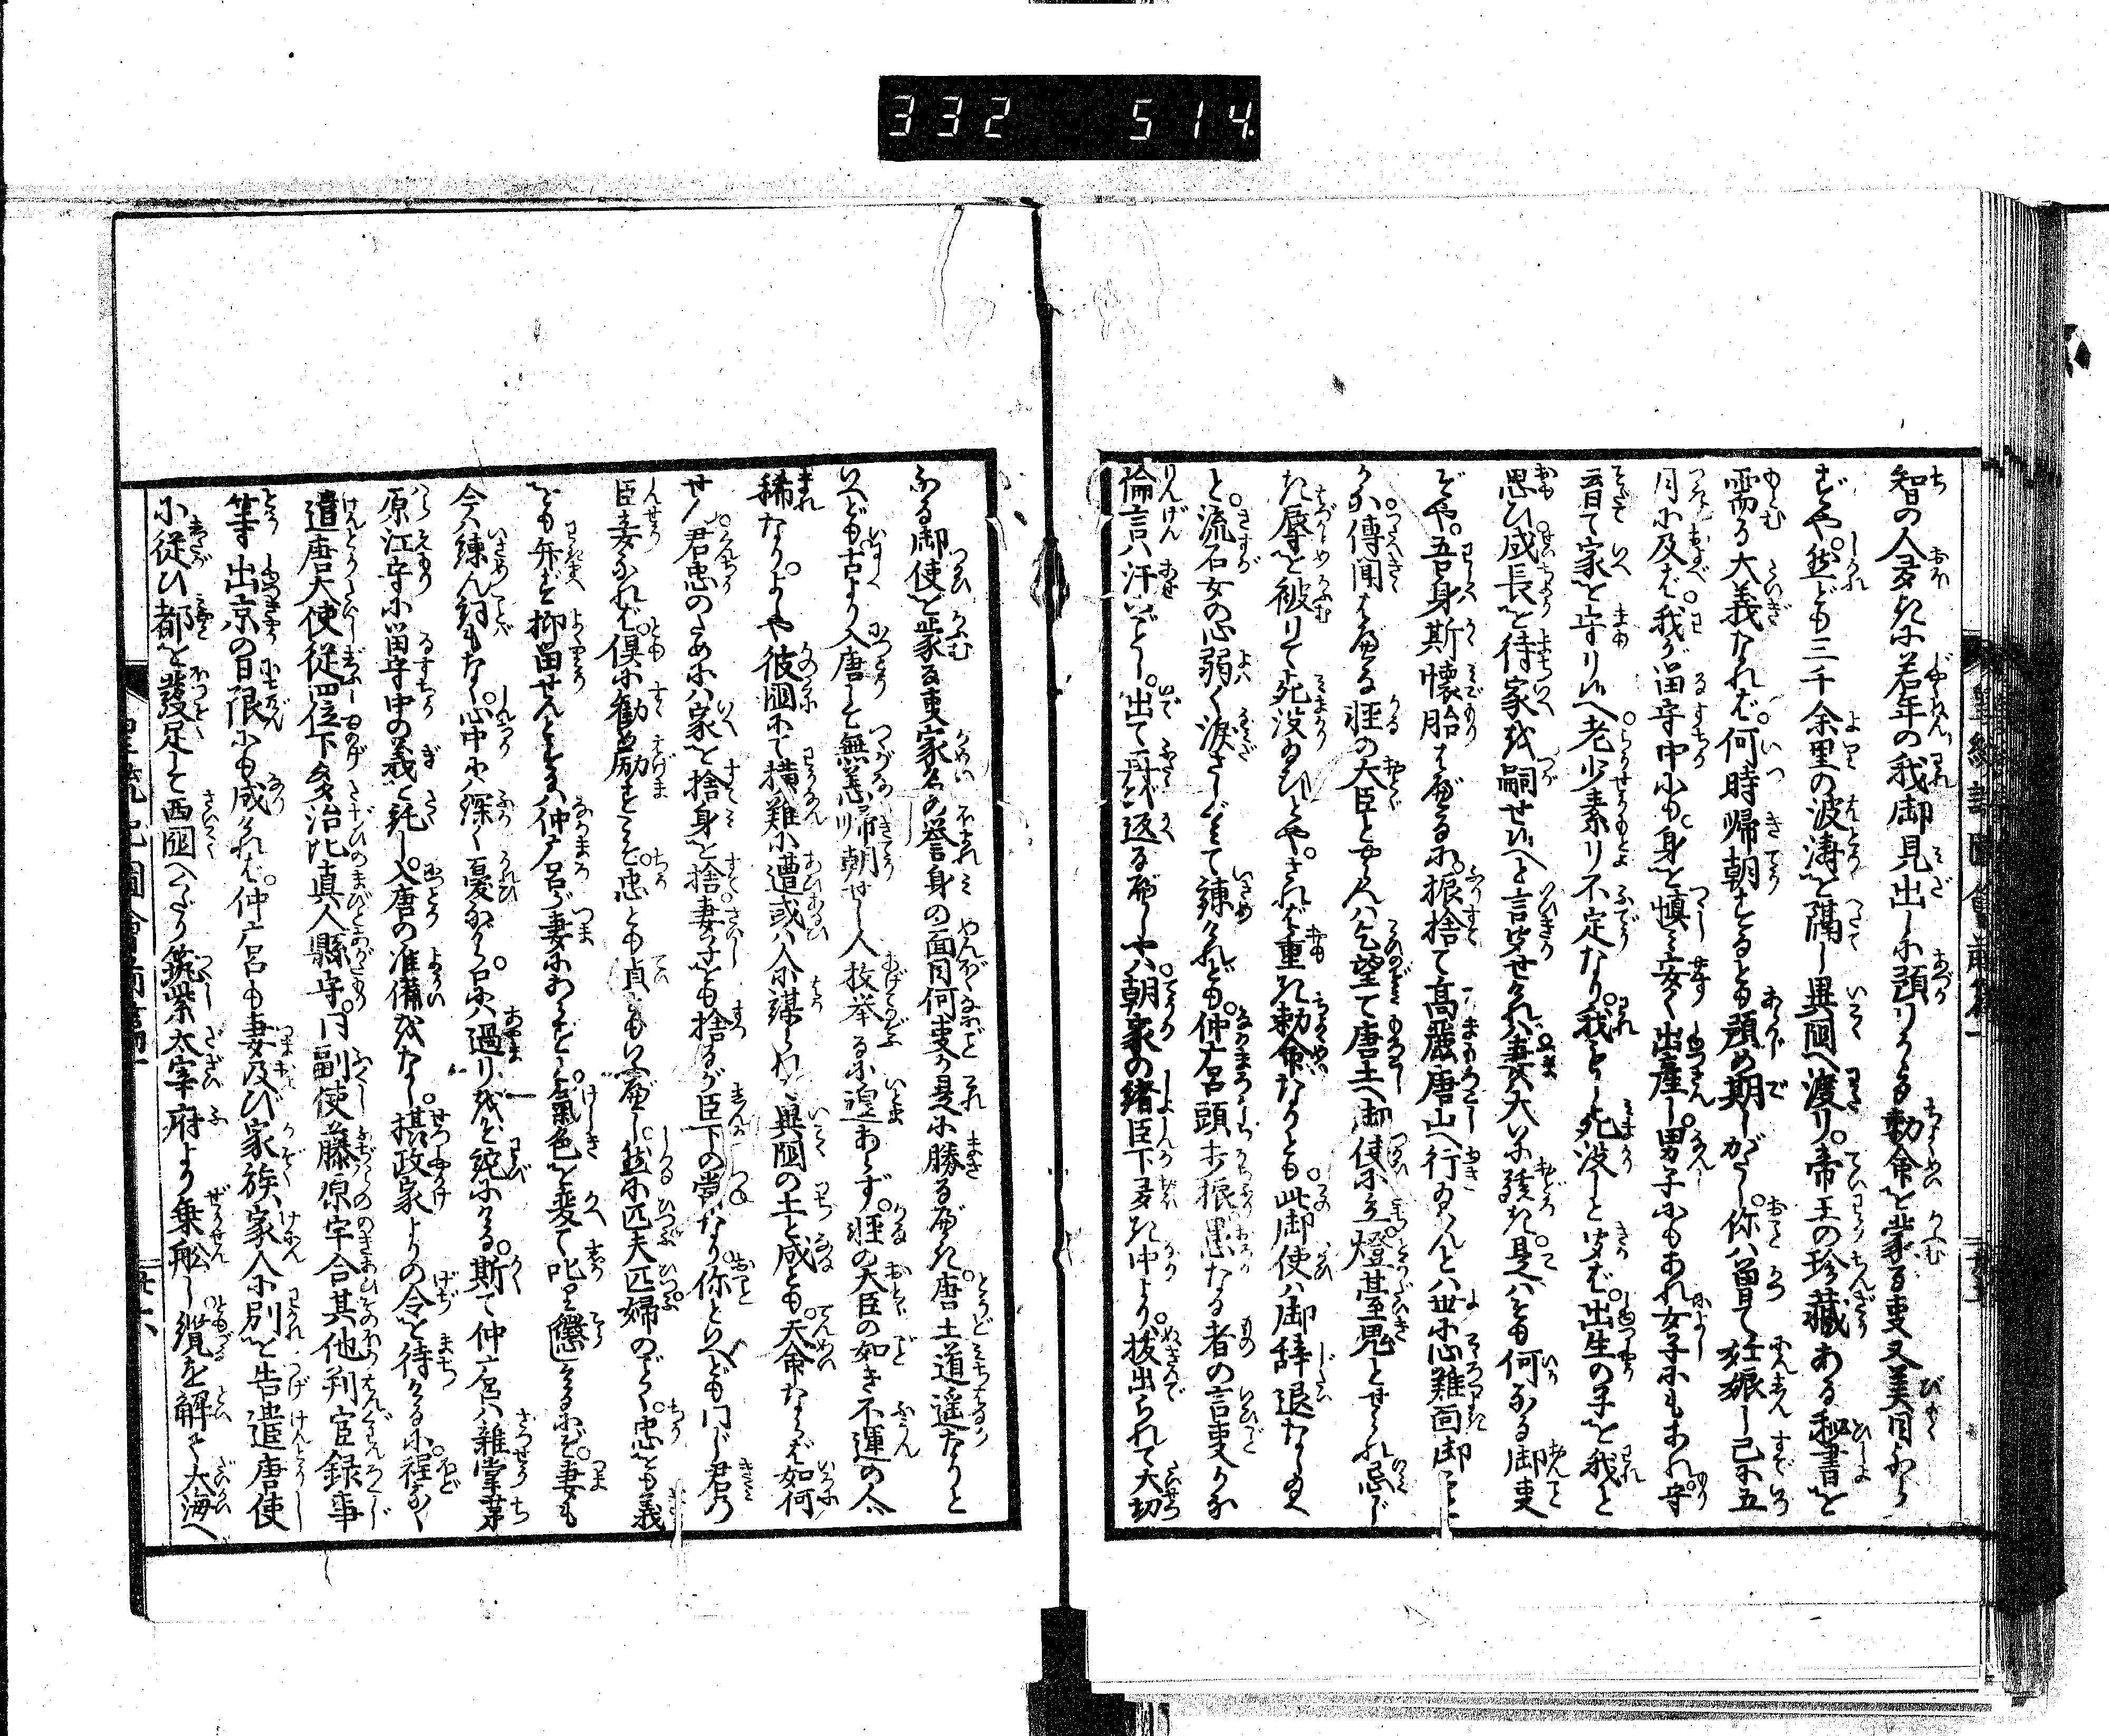 332 514
智の人多きに若年の我御見出しに預りかゝる勅命を蒙る事又美目なら
ずや。然ども三千余里の波濤を隔し異国へ渡り。帝王の珍蔵ある秘書を
需る大義なれば。何時帰朝するとも顔め期しがたし。你ハ曽て妊娠し已に五
月に及べば。我が留守中にも。身を慎み安く出産し。男子にもあれ女子にもあれ。守
育て家を守り給へ。老少素り不定なり。我もし死没しと聞ば。出生の子を我と
思ひ。成長を待家を嗣せ給へと言聞せければ。妻大いに駭き。是ハそも何なる御事
ぞや。吾身斯懐胎し侍るに。振捨て高麗唐山へ行給ハんとハ世に心難面御こと
かな。傳聞侍る軽の大臣とやらんハ乞望て唐土へ御使に立。燈䑓鬼とせられ忌じ
き辱を被りて死没給ひしとや。されば重き勅命なりとも。此御使ハ御辞退なし給へ
と。流石女の心弱く涙さしぐみて諫けれども。仲麻呂頭打振愚なる者の言事かな
倫言ハ汗のごとし。出て再び返るべしや。朝家の緒臣下多き中より。抜出られて大切
なる御使を蒙る事家名の誉身の面目何事か是に勝るべき。唐土道遥なりと
いへども古より入唐して無恙帰朝せし人枚挙るに遑あらず。軽の大臣の如き不運の人ハ
稀なり。よしや彼国にて横難に遭或ハ人に謀られ異国の土と成とも。天命ならば如何
せん。君忠のためにハ家を捨身を捨妻子をも捨るが臣下の常なり。你といへども同じ君の
臣妾なれば。倶に勧め励すこそ。忠とも貞ともいふべし。然に匹夫匹婦のごとく。忠をも義
をも弁ず抑留せんとするハ仲麻呂が妻にあらずと。氣色を変て叱り懲しければ。妻も
今ハ諫ん詞もなく。心中にハ深く憂ながら。口にハ過りを侘にける。斯て仲麻呂ハ雑掌茅
原江守に留守中の義を託し。入唐の准備をなし。摂政家よりの令を待けるに。程なく
遣唐大使従四位下多治比真人縣守。同副使藤原宇合其他判官録事
等出京の日限にも成ければ。仲麻呂も妻及び家族家人に別を告遣唐使
に従ひ都を發足して西国へくだり筑紫太宰府より乗舩し。纜を解て大海へ